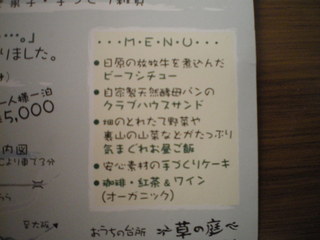 菓子・手づくり雑貨
…。」
りました。
一人様一泊
¥5,000
内図
車で7分
・・・M・E・N・U・・・
●日原の放牧牛を煮込んだ
ビーフシチュー
●自家製天然酵母パンの
クラブハウスサンド
●畑のとれたて野菜や
裏山の山菜などがたっぷり
気まぐれお昼ご飯
●安心素材の手づくりケーキ
●珈琲・紅茶&ワイン
(オーガニック)
おうちの台所
草の庭